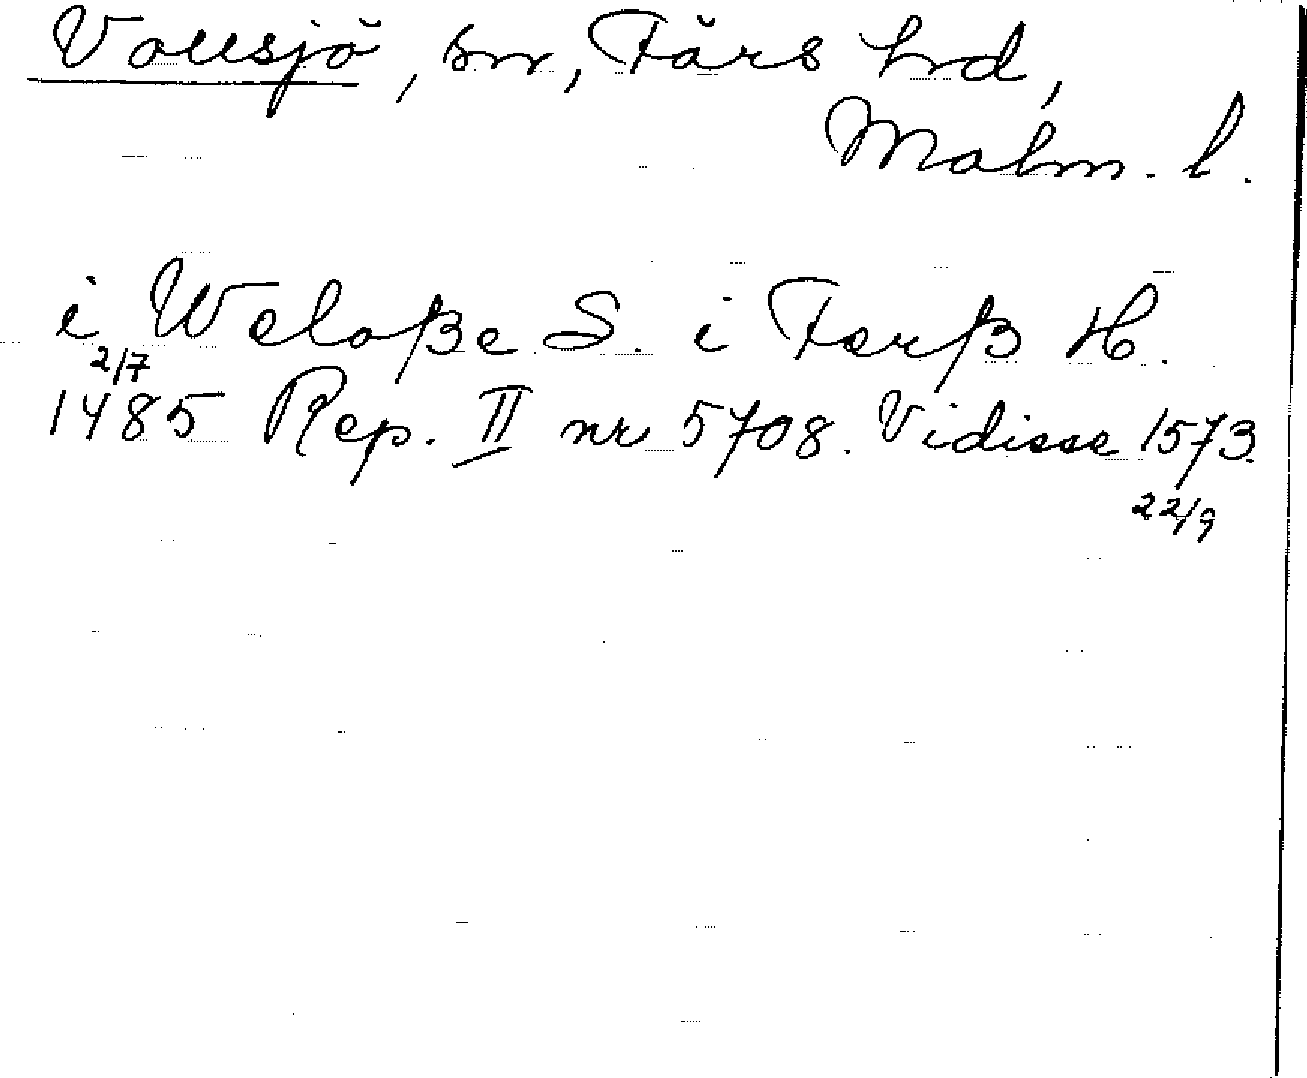 Vollsjö, sn, Färs hd,
Malm. l.
iWeloße S. i Ferß H.
2/7
1485 Rep. II nr 5708. Vidisse 1573.
22/9